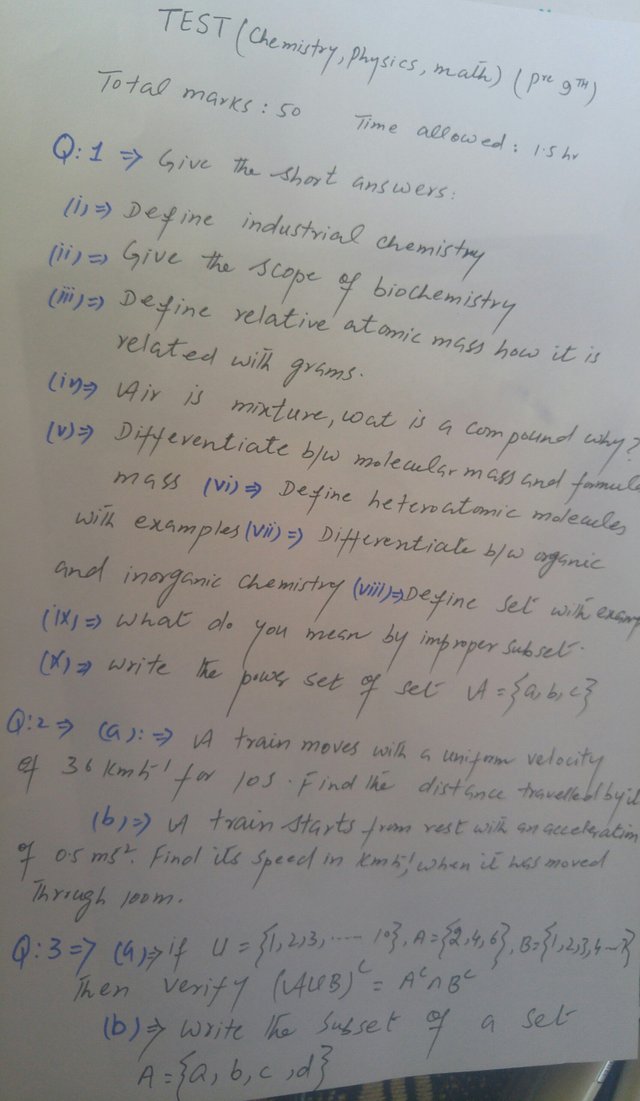 TEST (Chemistry, Physics, math) (Pre 9TH)
Total marks : 50 Time allowed : 1.5 hr
Q:1 ⇒ Give the short answers:
(i) ⇒ Define industrial chemistry
(ii) ⇒ Give the scope of biochemistry
(iii) ⇒ Define relative atomic mass how it is
related with grams.
(iv) ⇒ Air is mixture, wat is a compound why?
(v) ⇒ Differentiate b/w molecular mass and formula
mass (vi) ⇒ Define heteroatomic molecules
with examples (vii) ⇒ Differentiate b/w organic
and inorganic chemistry (viii) ⇒ Define set with examp
(ix) ⇒ What do you mean by improper subset.
(x) ⇒ Write the power set of set A = {a, b, c}
Q:2 ⇒ (a): ⇒ A train moves with a uniform velocity
of 36 Kmh⁻¹ for 10s. Find the distance travelled by it
(b) ⇒ A train starts from rest with an acceleration
of 0.5 ms⁻². Find its speed in Kmh⁻¹, when it has moved
Through 100m.
Q:3 ⇒ (a) ⇒ if U = {1,2,3, ---- 10}, A = {2,4,6}, B = {1,2,3,4-
Then verify (AUB)ᶜ = Aᶜ∩Bᶜ
(b) ⇒ Write the subset of a set
A = {a, b, c, d}